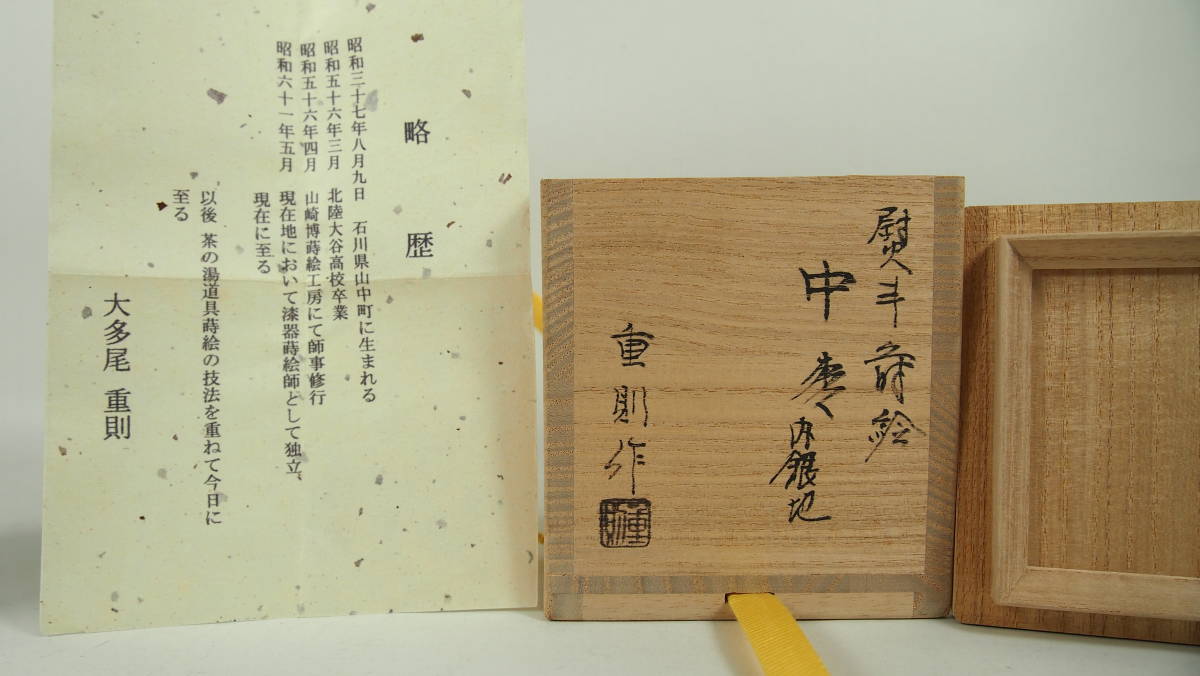 略歴
昭和三十七年八月九日 石川県山中町に生まれる
昭和五十六年三月 北陸大谷高校卒業
昭和五十六年四月 山崎博蒔絵工房にて師事修行
昭和六十一年五月 現在地において漆器蒔絵師として独立、
現在に至る
以後 茶の湯道具蒔絵の技法を重ねて今日に
至る
大多尾 重則
熨斗蒔絵
中棗 内銀地
重則作
重則